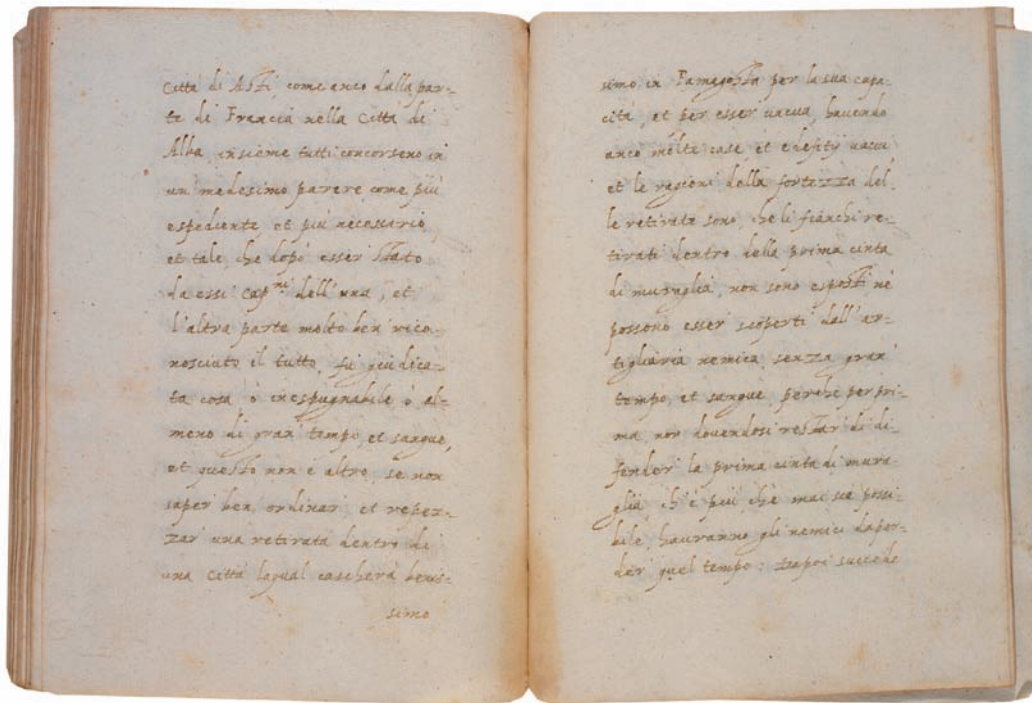 Città di Asti, come anco dalla par-
te di Francia nella Città di
Alba, insieme tutti concorseno in
un medesimo parere come più
espediente et più necessario,
et tale, che dopò esser stato
da essi Cap.ni dell'una, et
l'altra parte molto ben rico-
nosciuto il tutto, fù giudica-
ta cosa, ò inespugnabile, ò al-
meno di gran tempo, et sangue,
et questo non è altro, se non
saper ben, ordinar, et
zar una retirata dentro di
una Città laqual cascherà benis-
simo
simo in Famagosta per la sua capa-
cità, et per esser vacua, havendo
anco molte case, et edefitÿ vacui
et le ragioni della fortezza del-
le retirate sono, che li fianchi re-
tirati dentro della prima cinta
di muraglia, non sono esposti né
possono esser scoperti dall'ar-
tigliaria nemica, senza gran
tempo, et sangue, perché per pri-
ma, non dovendosi restar di di-
fender la prima cinta di mura-
glia ch'è più che mai sie possi-
bile, hauranno gli nemici da per-
der quel tempo: Dapoi succede